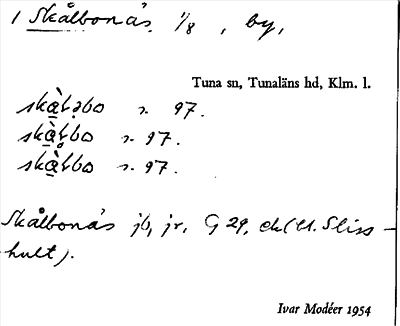 1 Skålbonäs. 1/8, by,
Tuna sn, Tunaläns hd, Klm. l.
skà̱ƚəbo r. 97.
skà̱ƚbo r. 97.
skà̱ƚ̊bo r. 97.
Skålbonäs jb, jr, G 29, ek (U. Sliss-
hult).
Ivar Modéer 1954